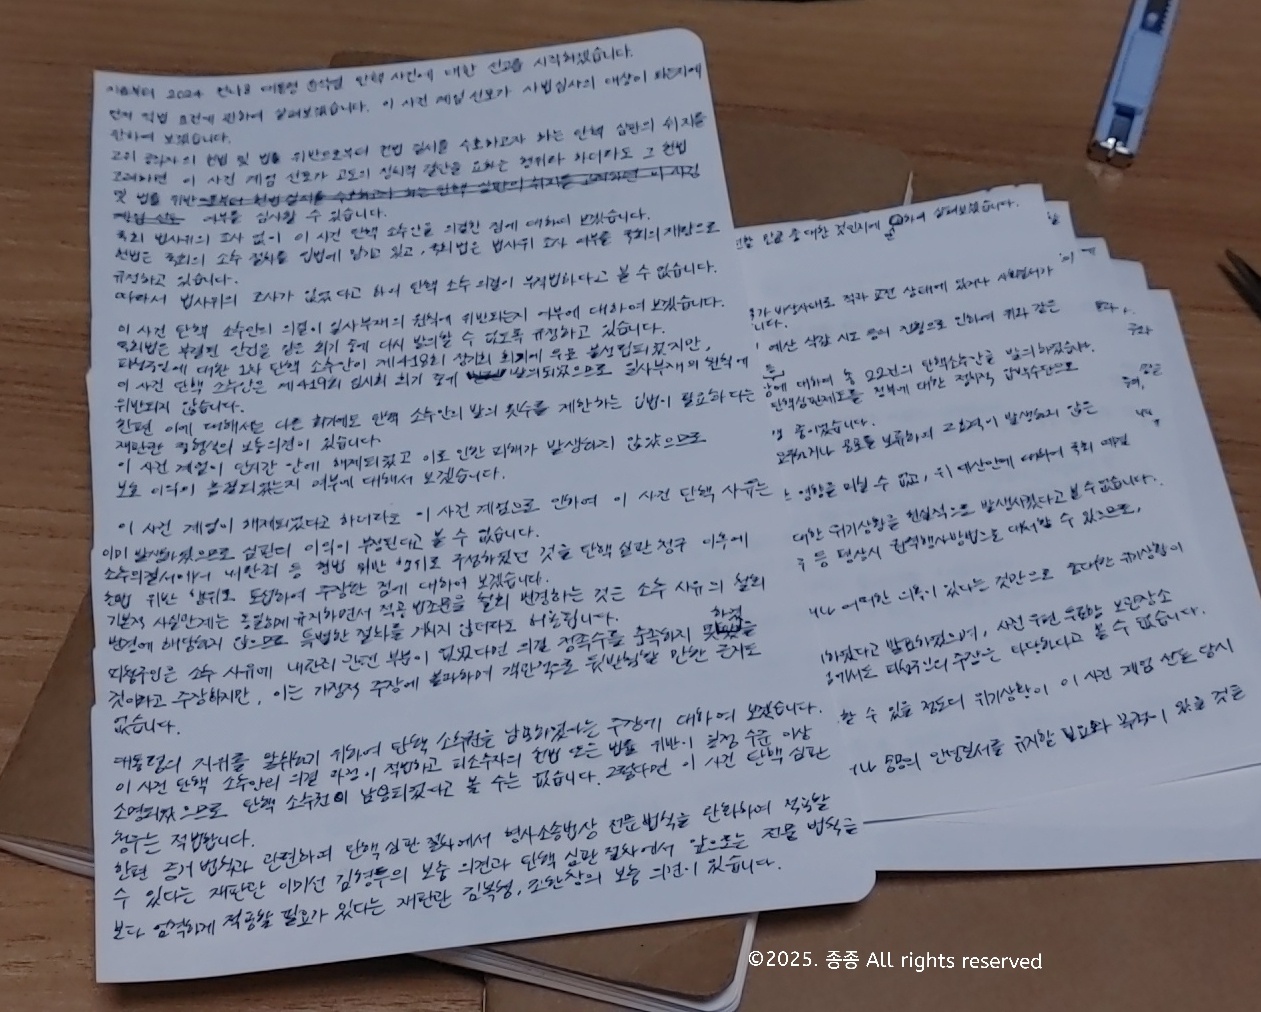 지금부터 2024 헌나8 대통령 윤석열 탄핵 사건에 대한 선고를 시작하겠습니다.
먼저 적법 요건에 관하여 살펴보겠습니다. 이 사건 계엄 선포가 사법심사의 대상이 되는지에
관하여 보겠습니다.
고위 공직자의 헌법 및 법률 위반으로부터 헌법 질서를 수호하고자 하는 탄핵 심판의 취지를
고려하면 이 사건 계엄 선포가 고도의 정치적 결단을 요하는 행위라 하더라도 그 헌법
및 법률 위반으로부터 헌법 질서를 수호하고자 하는 탄핵 심판의 취지를 고려하면 이 사건
계엄 선포 여부를 심사할 수 있습니다.
국회 법사위의 조사 없이 이 사건 탄핵 소추안을 의결한 점에 대하여 보겠습니다.
헌법은 국회의 소추 절차를 입법에 맡기고 있고, 국회법은 법사위 조사 여부를 국회의 재량으로
규정하고 있습니다.
따라서 법사위의 조사가 없었다고 하여 탄핵 소추 의결이 부적법하다고 볼 수 없습니다.
이 사건 탄핵 소추안의 의결이 일사부재의 원칙에 위반되는지 여부에 대하여 보겠습니다.
국회법은 부결된 안건을 같은 회기 중에 다시 발의할 수 없도록 규정하고 있습니다.
피청구인에 대한 1차 탄핵 소추안이 제418회 정기회 회기에 투표 불성립되었지만,
이 사건 탄핵 소추안은 제419회 임시회 회기 중에 발의되었으므로 일사부재의 원칙에
위반되지 않습니다.
한편 이에 대해서는 다른 회기에도 탄핵 소추안의 발의 횟수를 제한하는 입법이 필요하다는
재판관 정형식의 보충의견이 있습니다.
이 사건 계엄이 단시간 안에 해제되었고 이로 인한 피해가 발생하지 않았으므로
보호 이익이 흠결되었는지 여부에 대해서 보겠습니다.
이 사건 계엄이 해제되었다고 하더라도 이 사건 계엄으로 인하여 이 사건 탄핵 사유는
이미 발생하였으므로 심판의 이익이 부정된다고 볼 수 없습니다.
소추의결서에서 내란죄 등 형법 위반 행위로 구성하였던 것을 탄핵 심판 청구 이후에
헌법 위반 행위로 포섭하여 주장한 점에 대하여 보겠습니다.
기본적 사실관계는 동일하게 유지하면서 적용 법조문을 철회 변경하는 것은 소추 사유의 철회
변경에 해당하지 않으므로 특별한 절차를 거치지 않더라도 허용됩니다.
피청구인은 소추 사유에 내란죄 관련 부분이 없었다면 의결 정족수를 충족하지 못하였을
것이라고 주장하지만, 이는 가정적 주장에 불과하며 객관적으로 뒷받침할 만한 근거도
없습니다.
대통령의 지위를 탈취하기 위하여 탄핵 소추권을 남용하였다는 주장에 대하여 보겠습니다.
이 사건 탄핵 소추안의 의결 과정이 적법하고 피소추자의 헌법 또는 법률 위반이 일정 수준 이상
소명되었으므로 탄핵 소추권이 남용되었다고 볼 수는 없습니다. 그렇다면 이 사건 탄핵 심판
청구는 적법합니다.
한편 증거 법칙과 관련하여 탄핵 심판 절차에서 형사소송법상 전문법칙을 완화하여 적용할
수 있다는 재판관 이미선 김형두의 보충 의견과 탄핵 심판 절차에서 앞으로는 전문 법칙을
보다 엄격하게 적용할 필요가 있다는 재판관 김복형, 조한창의 보충 의견이 있습니다.
하여 살펴보겠습니다.
가 비상사태로 적과 교전 상태에 있거나 사회질서가
니다.
예산 삭감 시도 등의 전횡으로 인하여 위와 같은
에 대하여 총 22건의 탄핵소추안을 발의하였습니다.
탄핵심판제도를 정부에 대한 정치적 압박수단으로
중이었습니다.
요구하거나 공포를 보류하여 그 효력이 발생하지 않은
영향을 미칠 수 없고, 위 예산안에 대하여 국회 예결
대한 위기상황을 현실적으로 발생시켰다고 볼 수 없습니다.
구 등 평상시 권력행사방법으로 대처할 수 있으므로,
거나 어떠한 의혹이 있다는 것만으로 중대한 위기상황이
하였다고 발표하였으며, 사전 우편 투표함 보관장소
점에서도 피청구인의 주장은 타당하다고 볼 수 없습니다.
할 수 있을 정도의 위기상황이 이 사건 계엄 선포 당시
거나 공공의 안녕질서를 유지할 필요와 목적이 있을 것을
©2025. 종종 All rights reserved